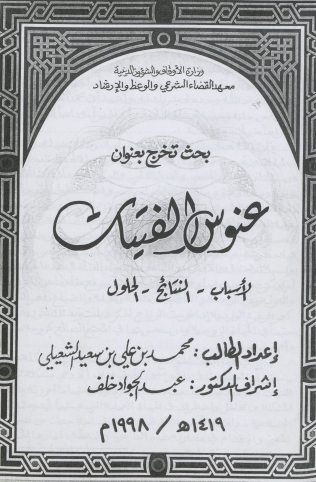 وزارة الأوقاف والشؤون الدينية
معهد القضاء الشرعي والوعظ والإرشاد
بحث تخرج بعنوان
عنوس الفتيات
الأسباب - النتائج - الحلول
إعداد الطالب: محمد بن علي بن سعيد الشعيلي
إشراف الدكتور: عبد الجواد خلف
١٤١٩هـ / ١٩٩٨م